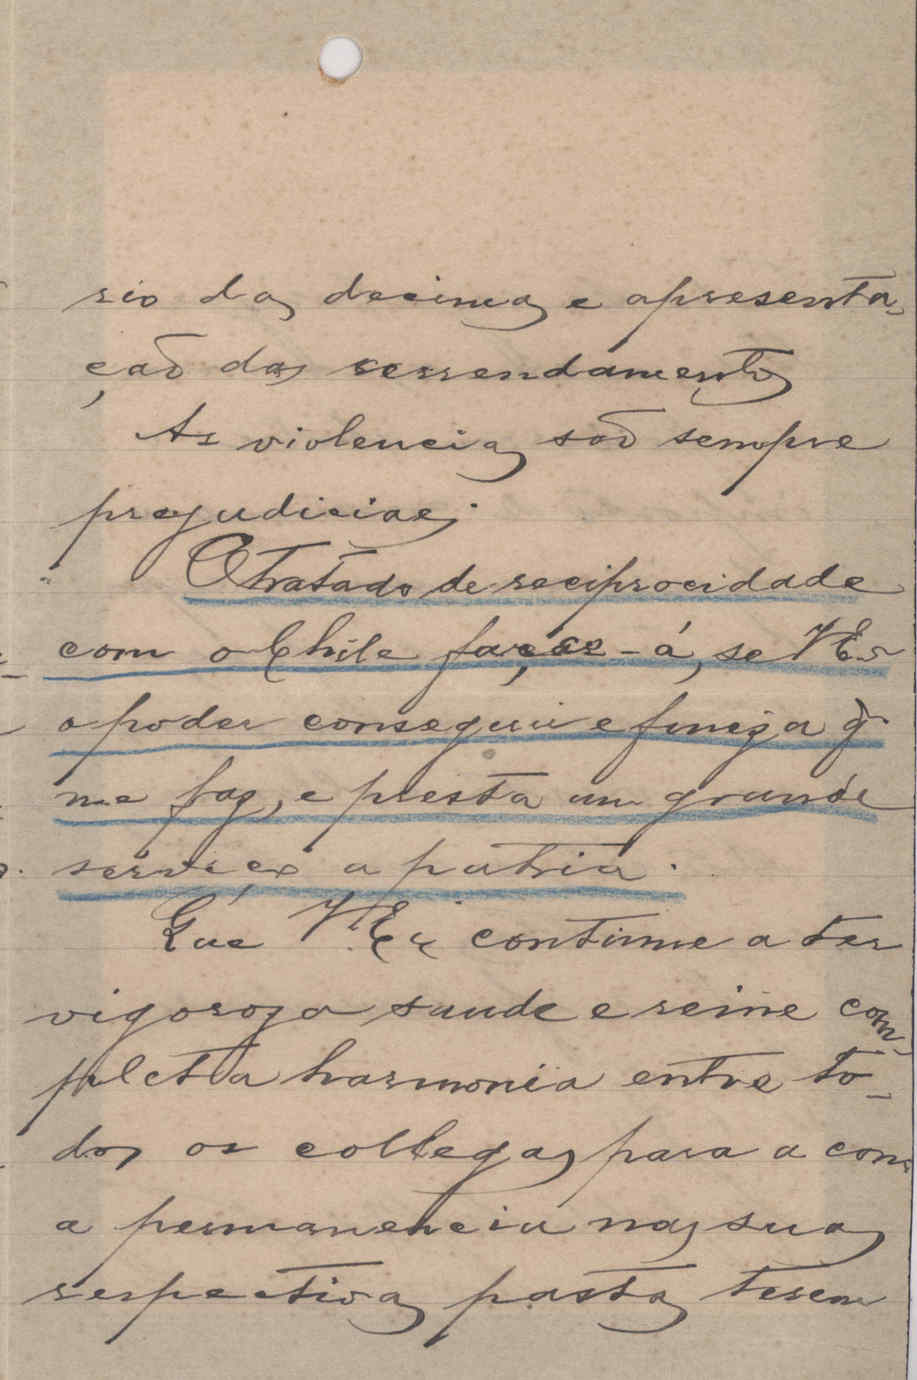 rio das decimas e apresenta-
ção dos arrendamentos
As violencias são sempre
prejudiciaes.
O tratado de reciprocidade
com o Chile faças-á, se V Ex
o poder conseguir e fineza q.
me faz, e presta um grande
serviço a patria.
Que V. Ex continue a ter
vigoroza saude e reine com-
pleta harmonia entre to-
dos os collegas para a com
a permanencia nas suas
respectivas pastas terem